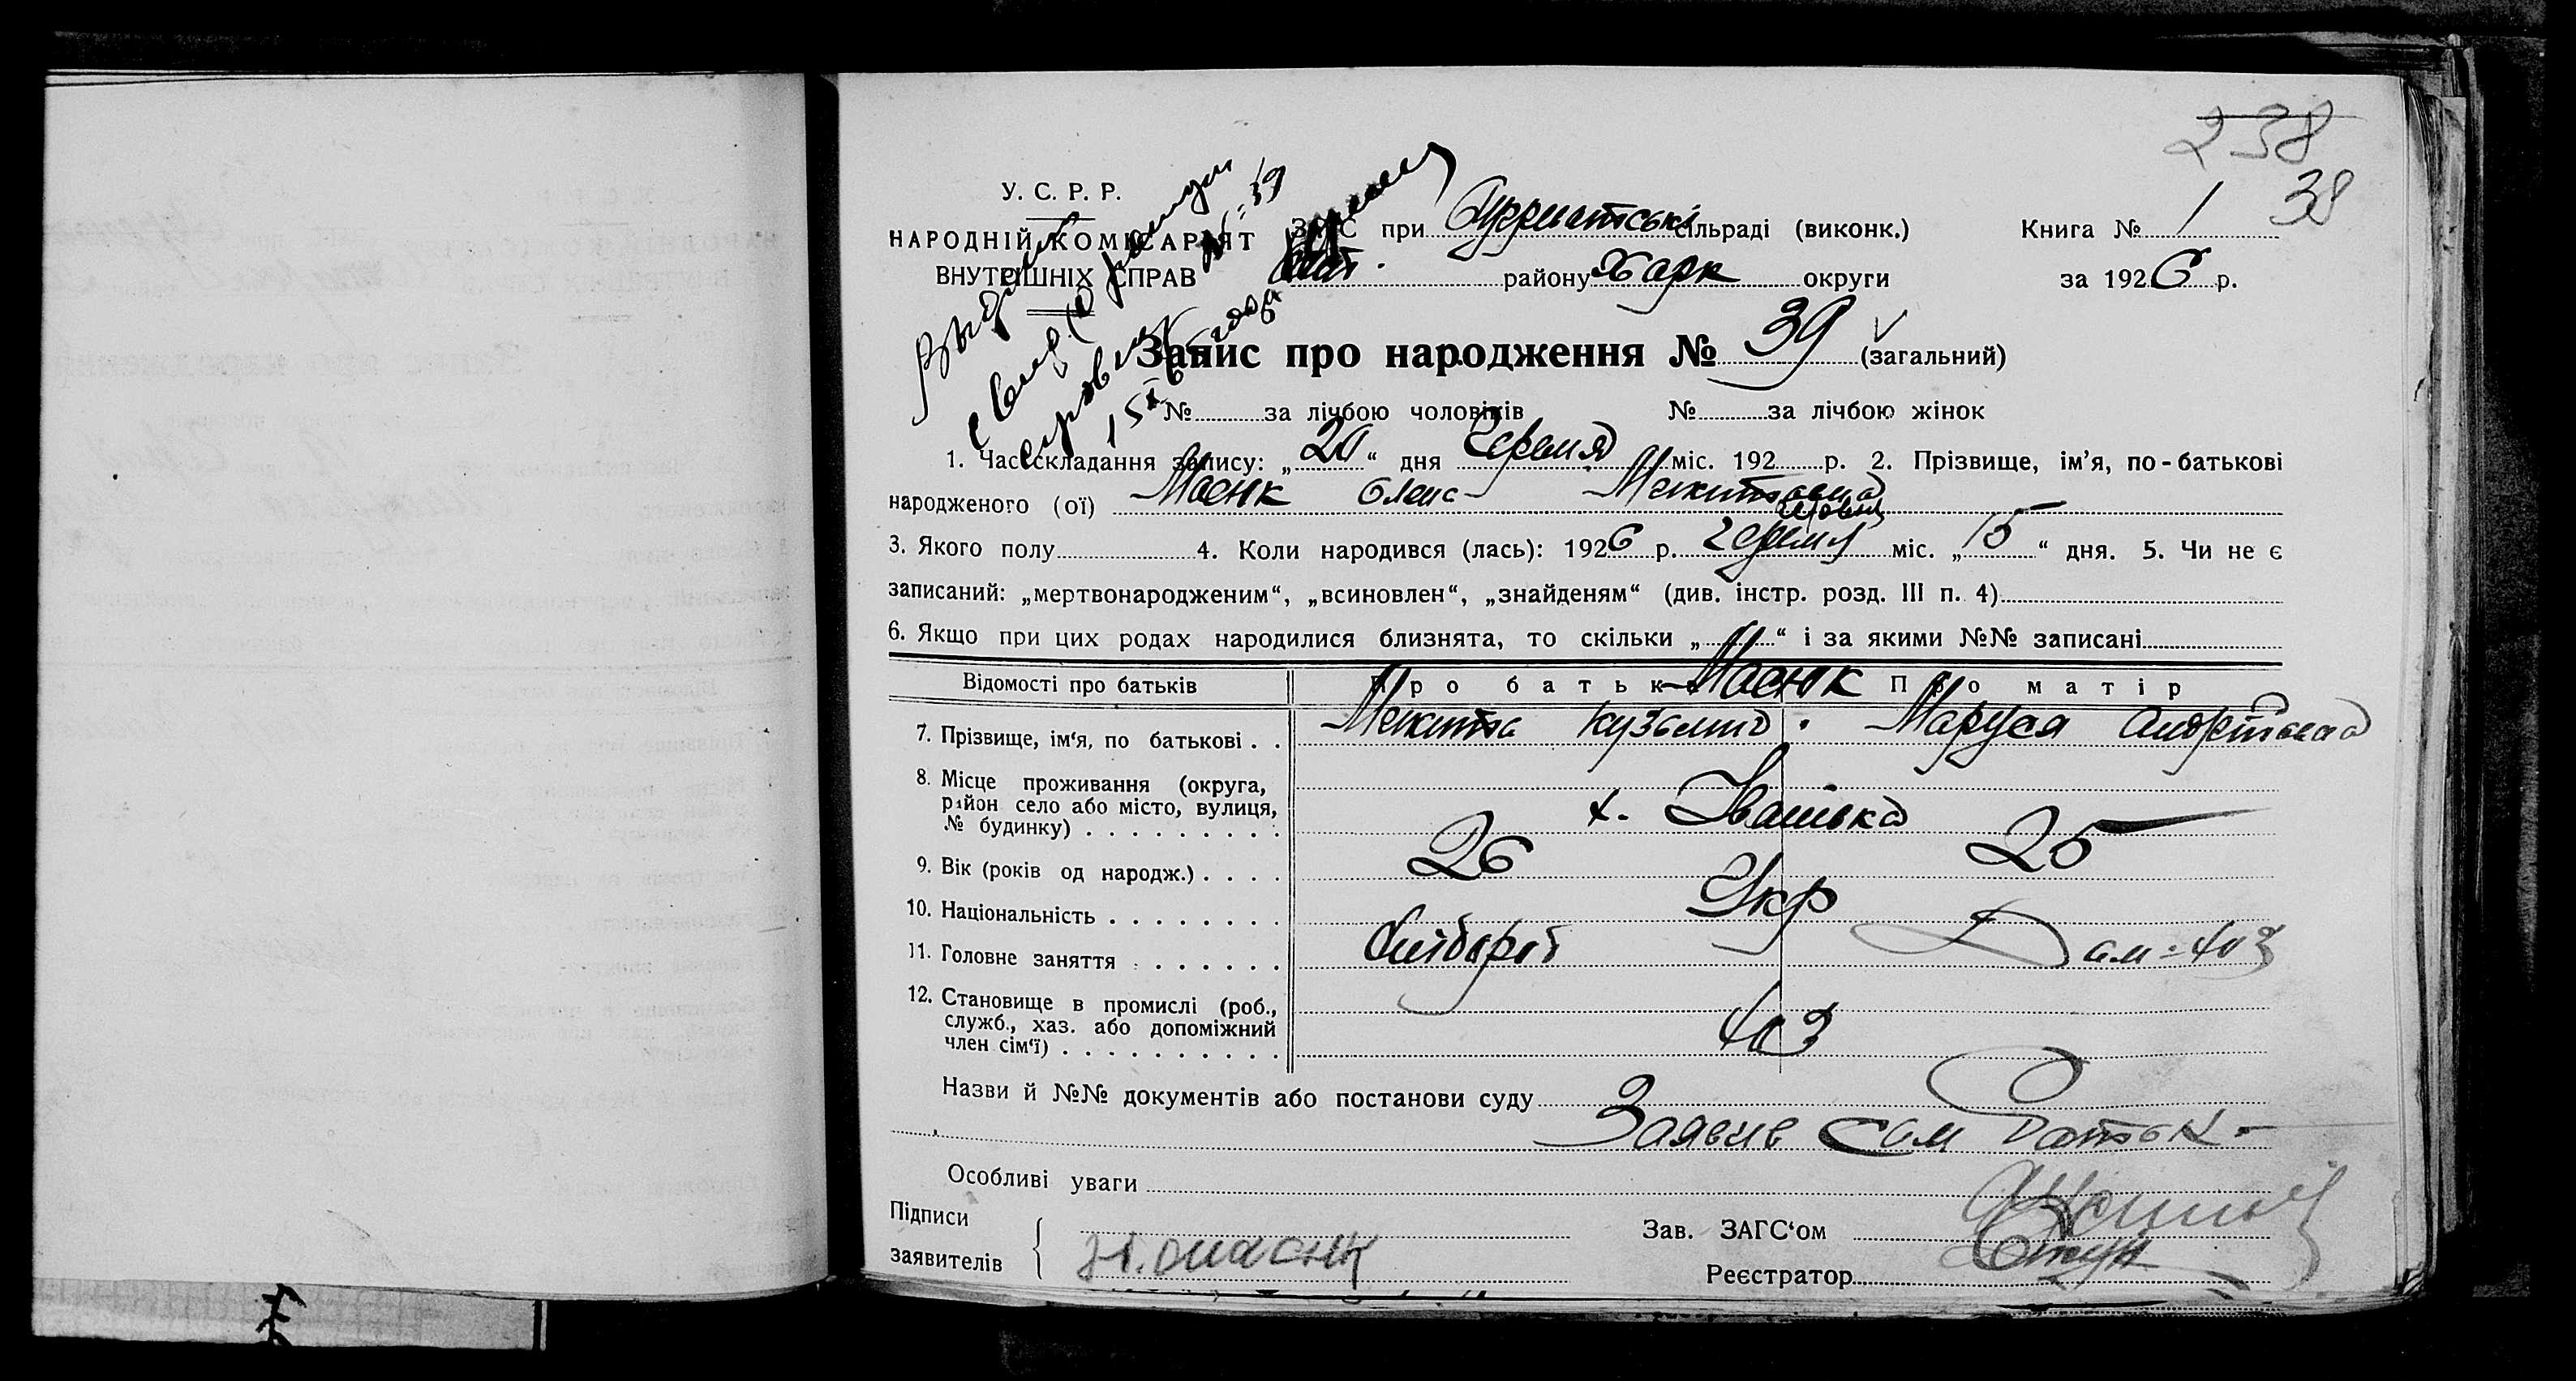 238
У. С. Р. Р.
НАРОДНІЙ КОМІСАРІЯТ
ВНУТРІШНІХ СПРАВ
ЗАГС при сільраді (виконк.)
району Харк округи
Книга № 1 38
за 1926 р.
Запис про народження № 39 (загальний)
№ за лічбою чоловіків № за лічбою жінок
1. Час складання запису: „20“ дня Червня міс. 192 р. 2. Прізвище, ім’я, по-батькові
народженого (ої) Масюк Олена Микитовна
червня
3. Якого полу 4. Коли народився (лась): 1926 р. міс. „15“ дня. 5. Чи не є
записаний: „мертвонародженим“, „всиновлен“, „знайденям“ (див. інстр. розд. III п. 4)
6. Якщо при цих родах народилися близнята, то скільки „ “ і за якими №№ записані
Відомості про батьків Про батька Про матір
Масюк
7. Прізвище, ім‘я, по батькові . . Микита Кузьмич Маруся Андріївна
8. Місце проживання (округа,
район село або місто, вулиця,
№ будинку) . . . . . . . . . х. Іванівка
9. Вік (років од народж.) . . . . 26 25
10. Національність . . . . . . . . Укр
11. Головне заняття . . . . . . . Хлібороб Дом. хоз
12. Становище в промислі (роб.,
служб., хаз. або допоміжний
член сім‘ї) . . . . . . . . . . хоз
Назви й №№ документів або постанови суду
Заявив сам батько
Особливі уваги
Підписи
заявителів
Н. Масюк
Зав. ЗАГС‘ом
Реєстратор